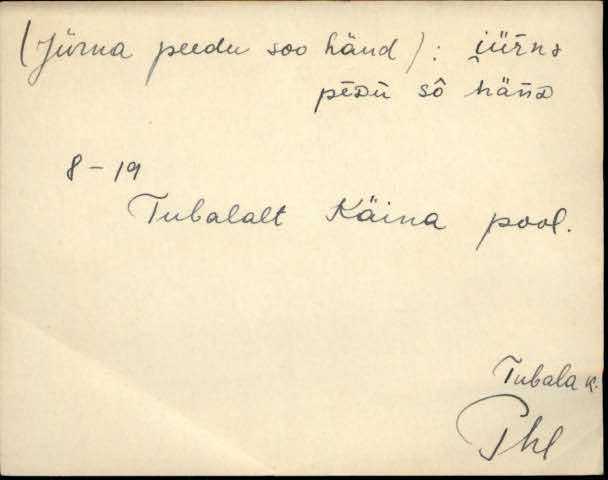 (Jürna peedu soo händ): i̯ürnɒ
pēᴅù sô hän̄ᴅ
8-19
Tubalalt Käina pool.
Tubala k.
Phl